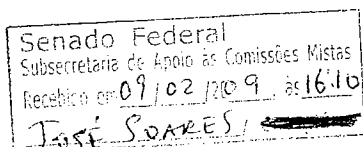 Senado Federal
Subsecretaria de Apoio às Comissões Mistas
Recebido em 09/02/2009, às 16:10
José SOARES/